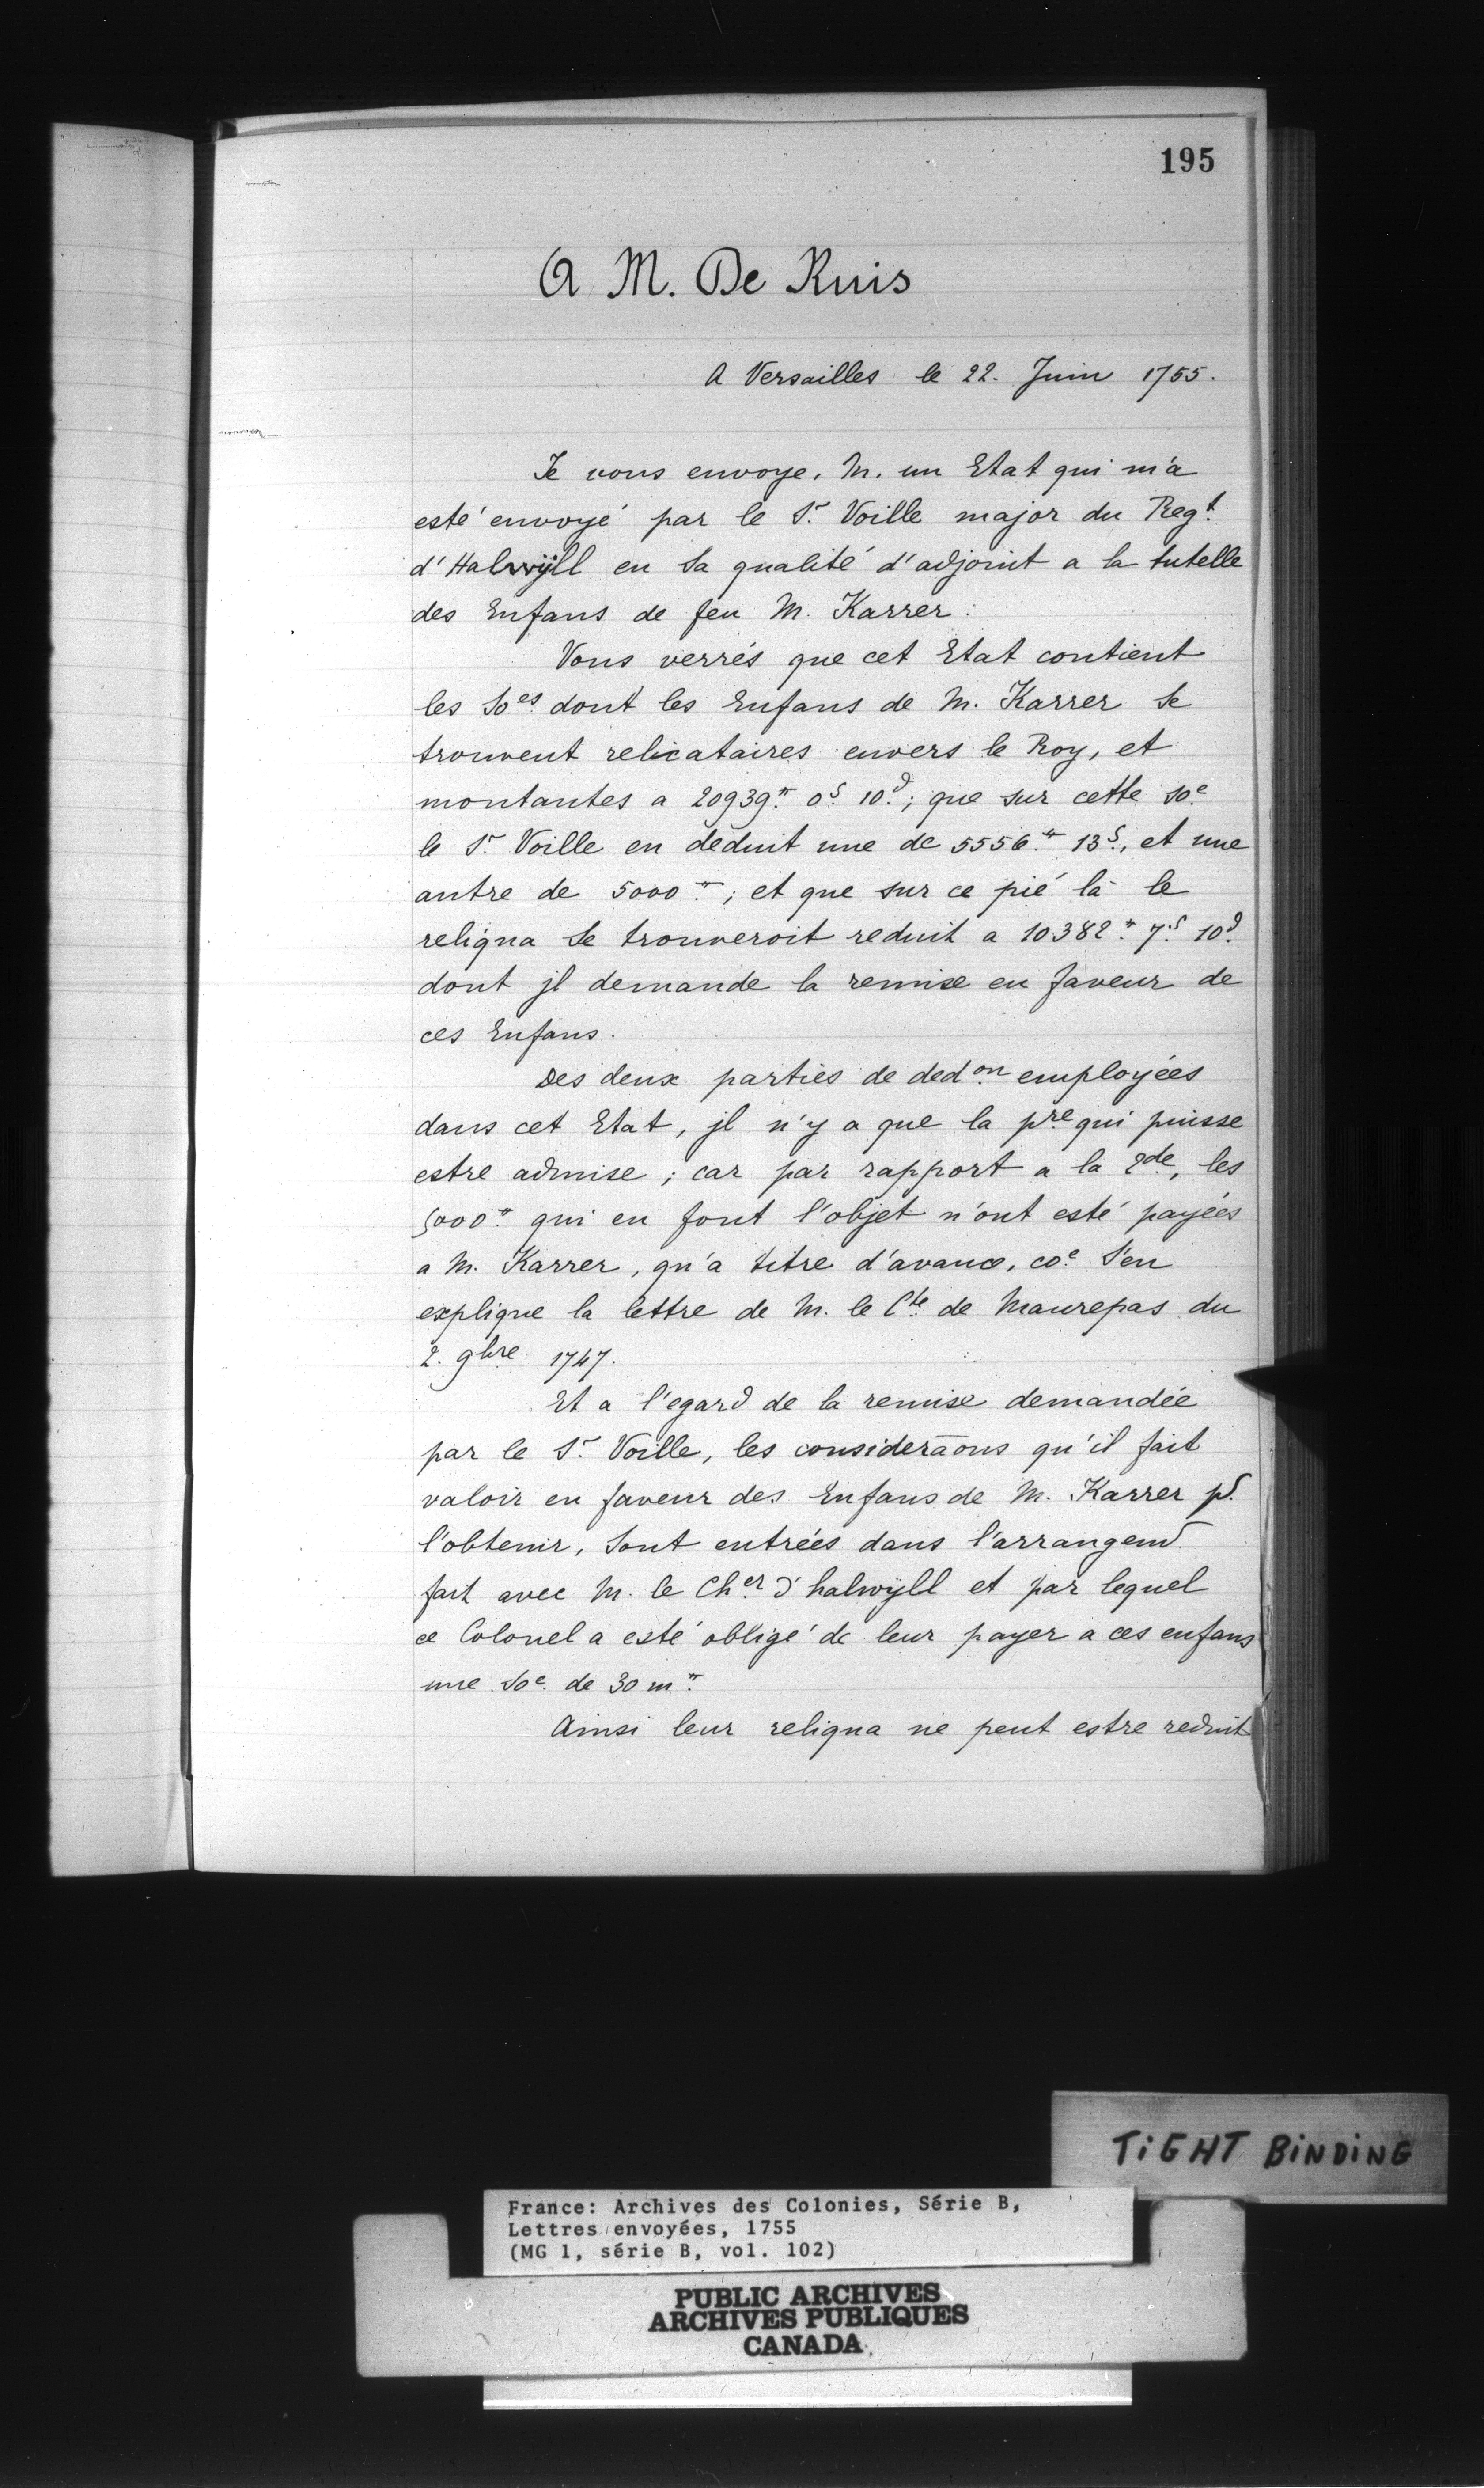 195
A M. De Ruis
A Versailles le 22. Juin 1755.
Je vous envoye, M. un Etat qui m'a
esté envoyé par le Sr. Voille major du Regt.
d'Halwÿll en sa qualité d'adjoint a la tutelle
des Enfans de feu M. Karrer.
Vous verrés que cet Etat contient
les Soes. dont les Enfans de M. Karrer se
trouvent relicataires envers le Roy, et
montantes a 20939.# 0.s 10.d; que sur cette soe.
le Sr. Voille en deduit une de 5556.# 13.s, et une
autre de 5000.#; et que sur ce pié là le
reliqua se trouveroit reduit a 10382.# 7.s 10.d
dont jl demande la remise en faveur de
ces Enfans.
Des deux parties de dedon. employées
dans cet Etat, jl n'y a que la pre. qui puisse
estre admise; car par rapport a la 2de., les
5000.# qui en font l'objet n'ont esté payées
a M. Karrer, qu'a titre d'avance, coe. s'en
explique la lettre de M. le Cte. de Maurepas du
2. 9bre 1747.
Et a l'egard de la remise demandée
par le Sr. Voille, les consideraōns qu'il fait
valoir en faveur des Enfans de M. Karrer pr.
l'obtenir, sont entrées dans l'arrangemt.
fait avec M. le Cher. d'halwÿll et par lequel
ce Colonel a esté obligé de leur payer a ces enfans
une soe. de 30 m.#
Ainsi leur reliqua ne peut estre reduit
TiGHT BiNDiNG
France: Archives des Colonies, Série B,
Lettres envoyées, 1755
(MG 1, série B, vol. 102)
PUBLIC ARCHIVES
ARCHIVES PUBLIQUES
CANADA